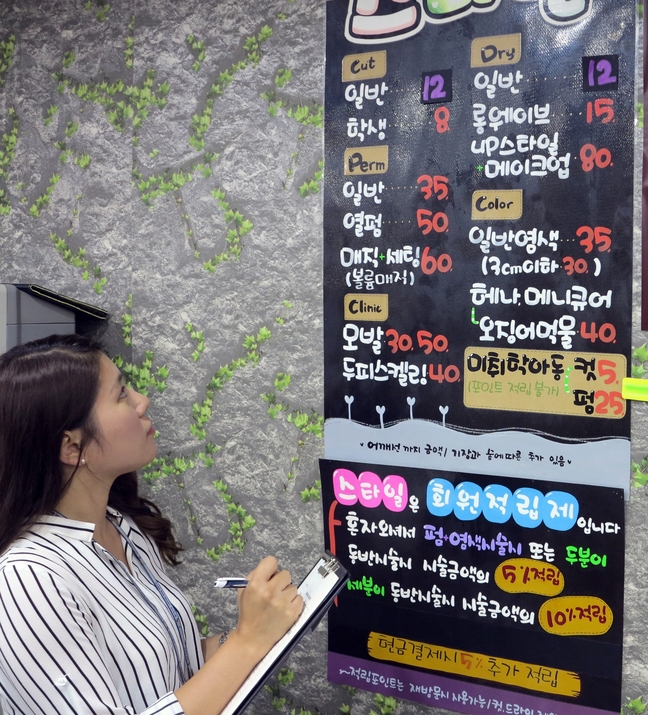 스타일
Cut
일반 12
학생 8
Perm
일반 35
열펌 50
매직+세팅 60
(볼륨매직)
Clinic
모발 30. 50.
두피스켈링 40
Dry
일반 12
롱웨이브 15
up스타일
+메이크업 80
Color
일반염색 35
(3cm이하 30.)
헤나, 메니큐어
오징어먹물 40
미취학아동 컷 5
(포인트 적립불가) 펌 25
어깨선 까지 금액/ 기장과 숱에따른 추가 있음
스타일은 회원적립제입니다
혼자오셔서 펌+염색시술시 또는 두분이
동반시술시 시술금액의 5%적립
세분이 동반시술시 시술금액의 10%적립
현금결제시 5% 추가 적립
~적립포인트는 재방문시 사용가능/컷,드라이